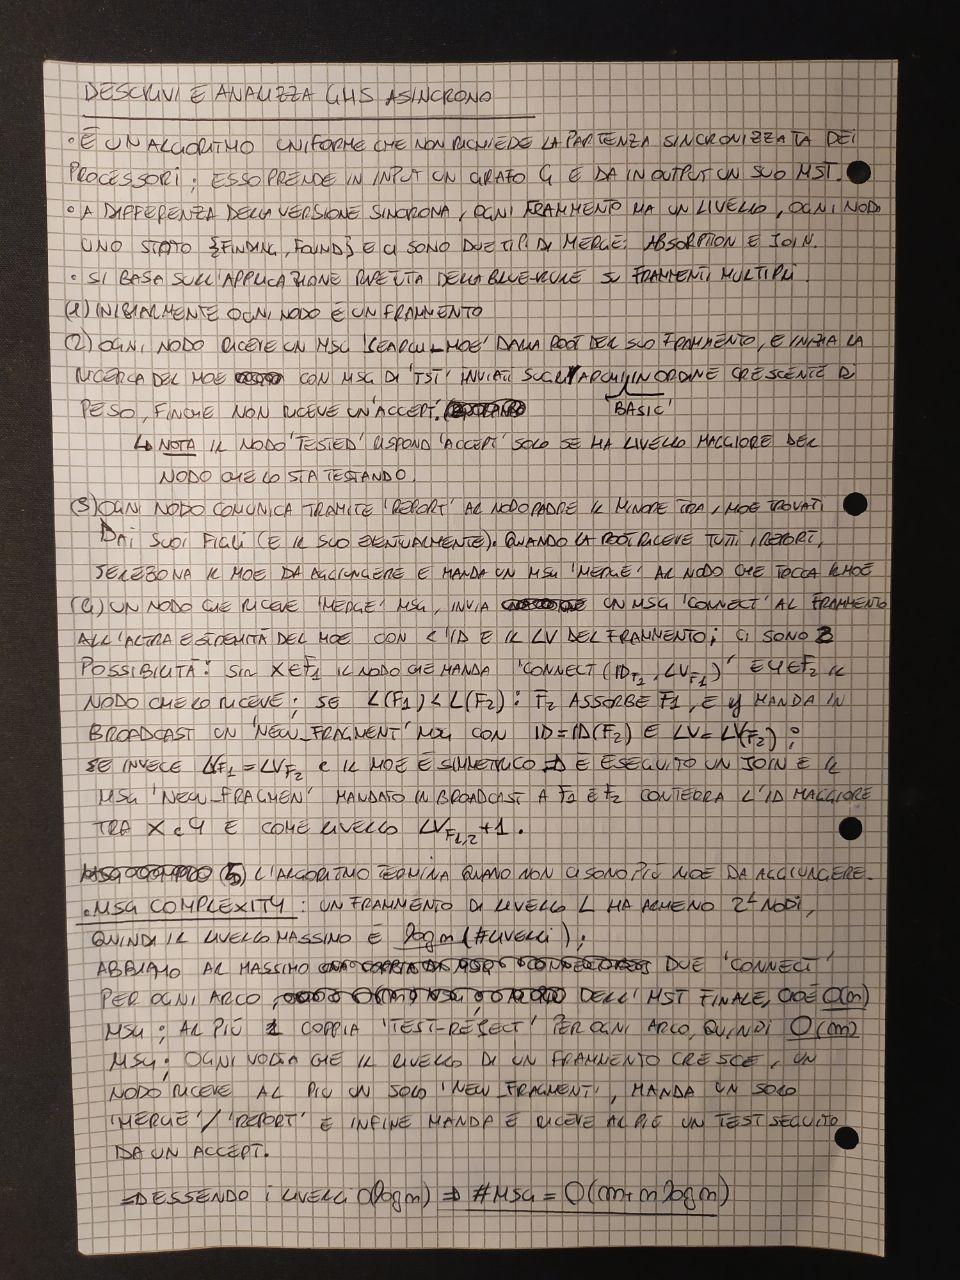 DESCRIVI E ANALIZZA GHS ASINCRONO
• È UN ALGORITMO UNIFORME CHE NON RICHIEDE LA PARTENZA SINCRONIZZATA DEI
PROCESSORI; ESSO PRENDE IN INPUT UN GRAFO G E DA IN OUTPUT UN SUO MST.
• A DIFFERENZA DELLA VERSIONE SINCRONA, OGNI FRAMMENTO HA UN LIVELLO, OGNI NODO
UNO STATO {FINDING, FOUND} E CI SONO DUE TIPI DI MERGE: ABSORPTION E JOIN.
• SI BASA SULL'APPLICAZIONE RIPETUTA DELLA BLUE-RULE SU FRAMMENTI MULTIPLI.
(1) INIZIALMENTE OGNI NODO È UN FRAMMENTO
(2) OGNI NODO RICEVE UN MSG 'SEARCH_MOE' DALLA ROOT DEL SUO FRAMMENTO, E INIZIA LA
RICERCA DEL MOE CON MSG DI 'TST' INVIATI SUGLI ARCHI IN ORDINE CRESCENTE DI
PESO, FINCHE NON RICEVE UN 'ACCEPT'. BASIC'
↳ NOTA IL NODO 'TESTED' RISPOND 'ACCEPT' SOLO SE HA LIVELLO MAGGIORE DEL
NODO CHE LO STA TESTANDO.
(3) OGNI NODO COMUNICA TRAMITE 'REPORT' AL NODO PADRE IL MINORE TRA I MOE TROVATI
DAI SUOI FIGLI (E IL SUO EVENTUALMENTE). QUANDO LA ROOT RICEVE TUTTI I REPORT,
SELEZIONA IL MOE DA AGGIUNGERE E MANDA UN MSG 'MERGE' AL NODO CHE TOCCA IL MOE
(4) UN NODO CHE RICEVE 'MERGE' MSG, INVIA UN MSG 'CONNECT' AL FRAMMENTO
ALL'ALTRA ESTREMITÀ DEL MOE CON L'ID E IL LV DEL FRAMMENTO; CI SONO 2
POSSIBILITÀ: SIA X∈F1 IL NODO CHE MANDA 'CONNECT (ID_F1, LV_F1)' E Y∈F2 IL
NODO CHE LO RICEVE; SE L(F1) < L(F2): F2 ASSORBE F1, E Y MANDA IN
BROADCAST UN 'NEW_FRAGMENT' MSG CON ID=ID(F2) E LV=LV(F2);
SE INVECE LV_F1 = LV_F2 e IL MOE È SIMMETRICO ⇒ È ESEGUITO UN JOIN E IL
MSG 'NEW_FRAGMEN' MANDATO IN BROADCAST A F1 E F2 CONTERRA L'ID MAGGIORE
TRA X e Y E COME LIVELLO LV_F1,2 +1.
(5) L'ALGORITMO TERMINA QUANO NON CI SONO PIÙ MOE DA AGGIUNGERE.
• MSG COMPLEXITY: UN FRAMMENTO DI LIVELLO L HA ALMENO 2^L NODI,
QUINDI IL LIVELLO MASSIMO È log n (#LIVELLI);
ABBIAMO AL MASSIMO DUE 'CONNECT'
PER OGNI ARCO DELL'MST FINALE, CIOÈ O(n)
MSG; AL PIÙ 1 COPPIA 'TEST-REJECT' PER OGNI ARCO, QUINDI O(m)
MSG; OGNI VOLTA CHE IL LIVELLO DI UN FRAMMENTO CRESCE, UN
NODO RICEVE AL PIÙ UN SOLO 'NEW_FRAGMENT', MANDA UN SOLO
'MERGE'/'REPORT' E INFINE MANDA E RICEVE AL PIÙ UN TEST SEGUITO
DA UN ACCEPT.
⇒ ESSENDO i LIVELLI O(log n) ⇒ #MSG = O(m+n log n)